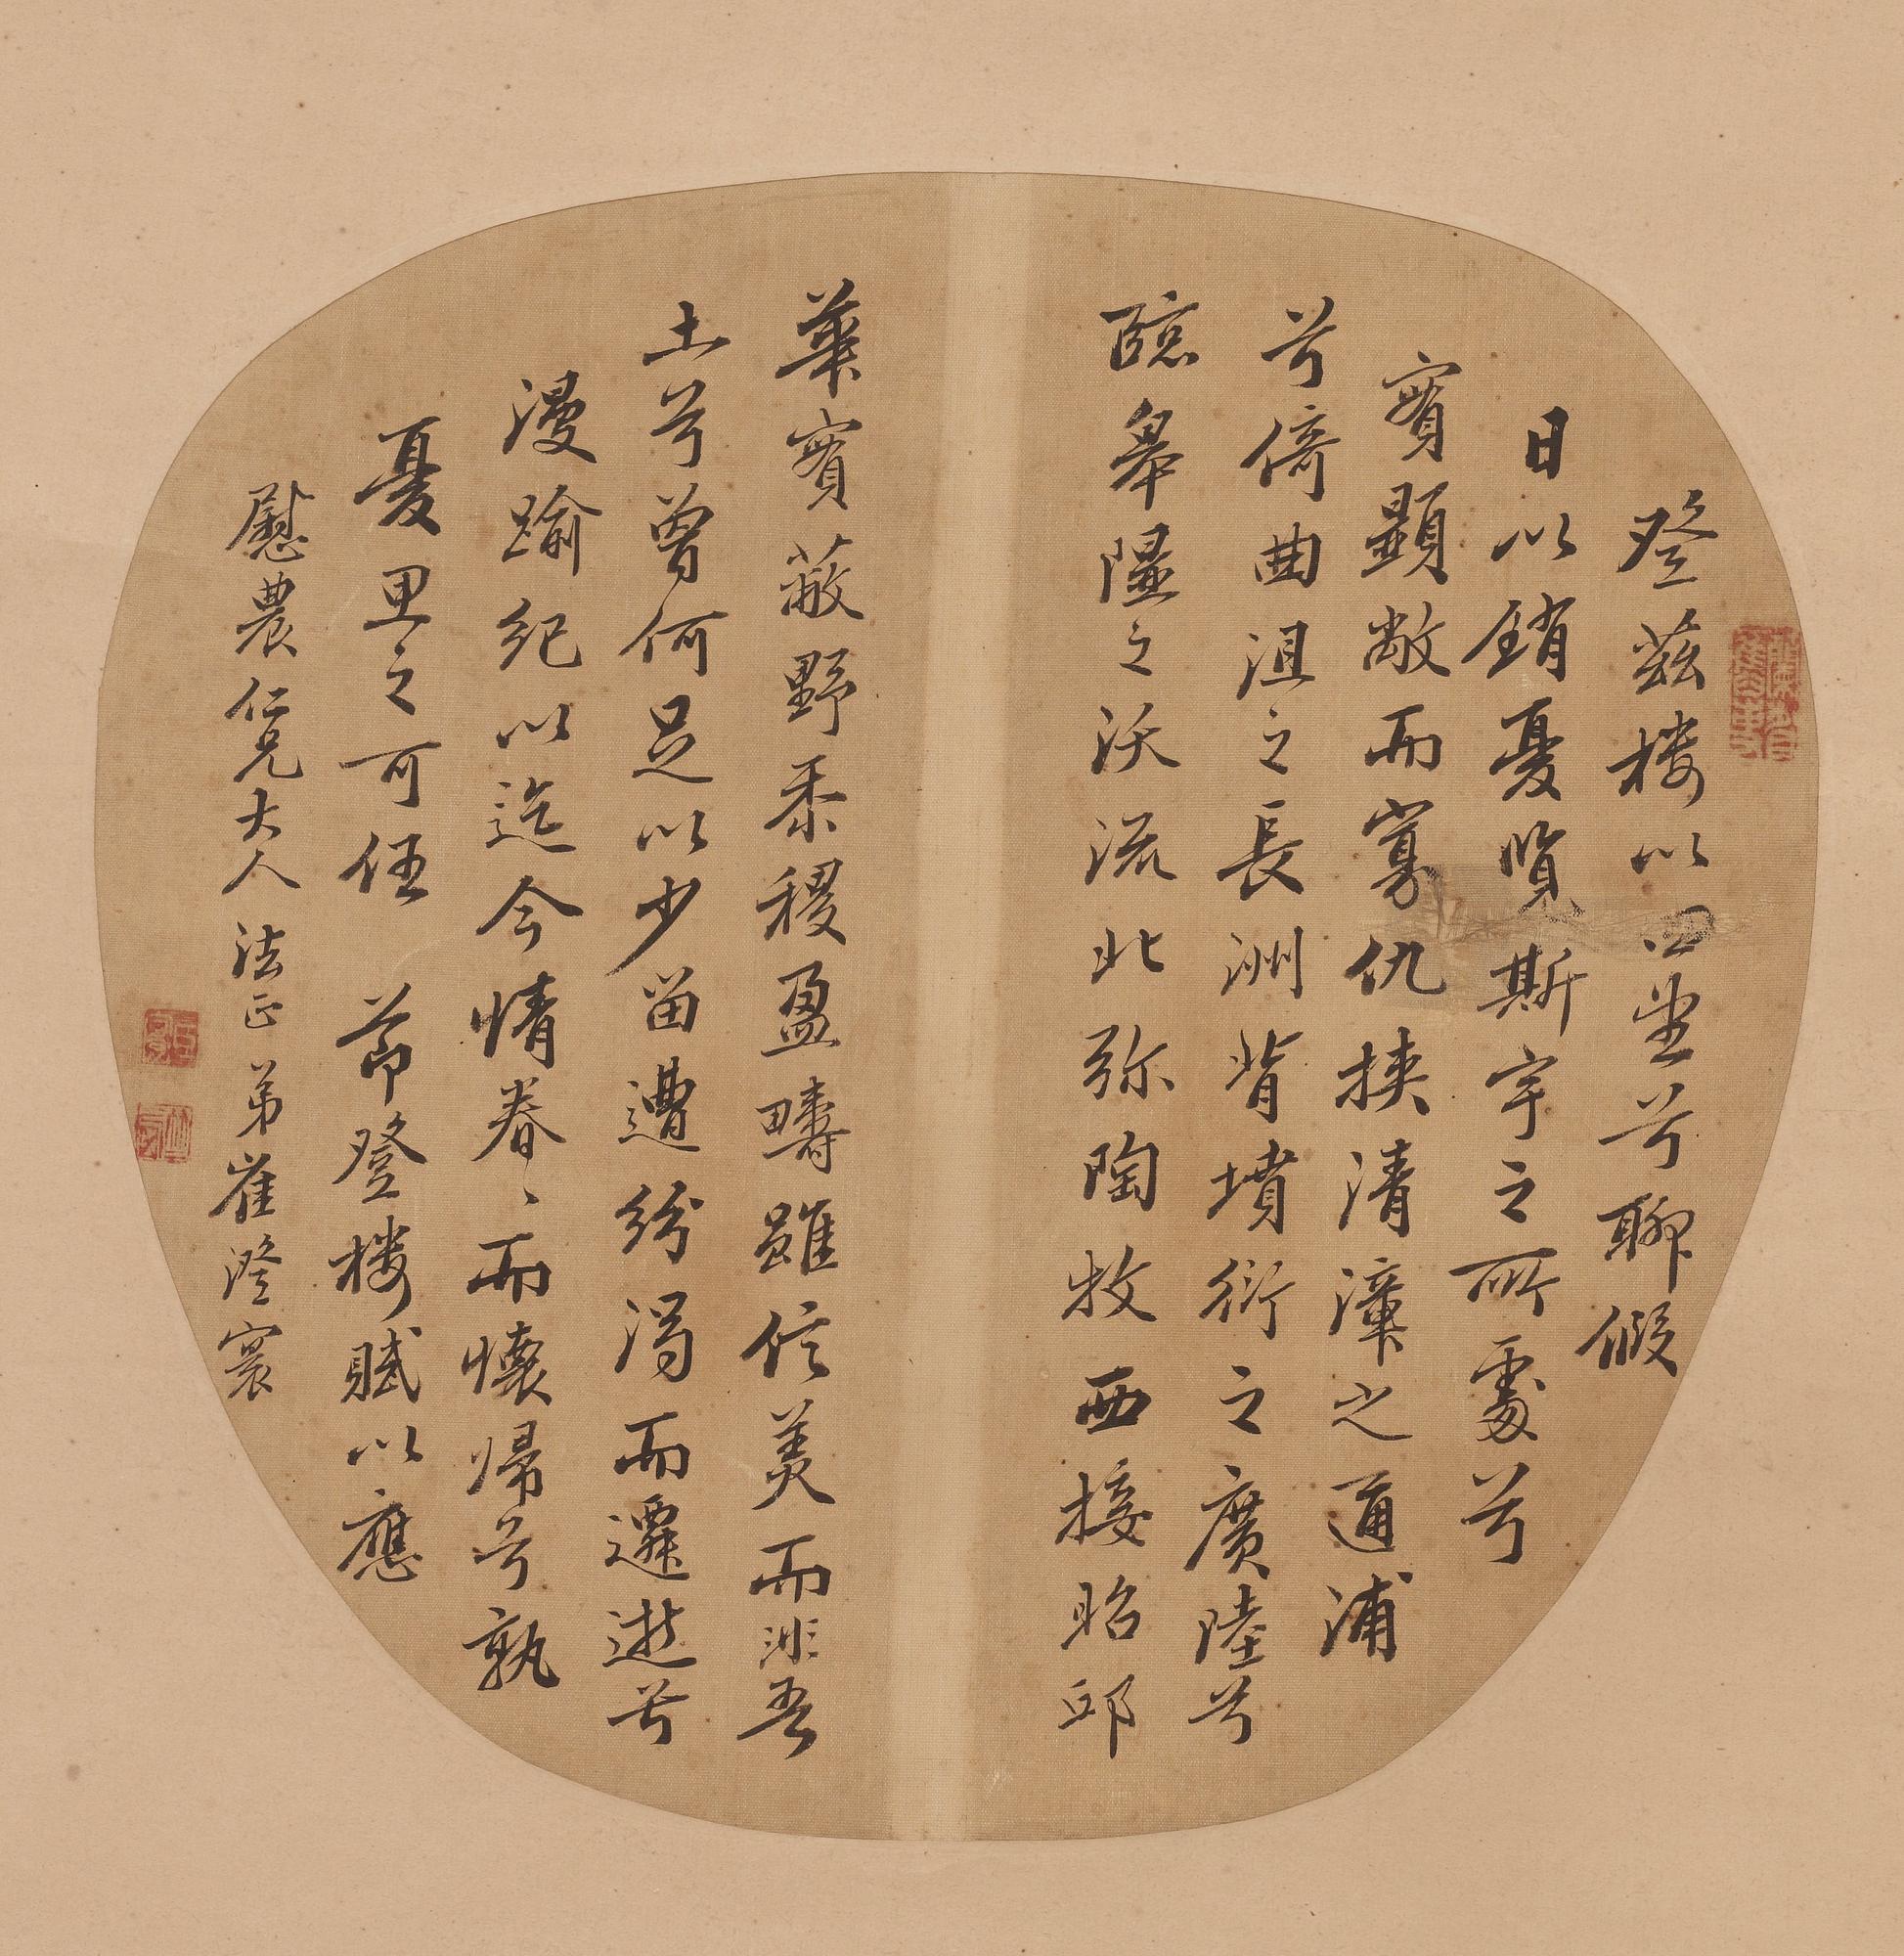 登茲樓以四望兮聊假
日以銷憂覽斯宇之所處兮
實顯敞而寡仇挾清漳之通浦
兮倚曲沮之長洲背墳衍之廣陸兮
臨皋隰之沃流北彌陶牧西接昭邱
華實蔽野黍稷盈疇雖信美而非吾
土兮曾何足以少留遭紛濁而遷逝兮
漫踰紀以迄今情眷〻而懷歸兮孰
憂思之可任 節登樓賦以應
慰農仁兄大人法正 弟崔澄寰